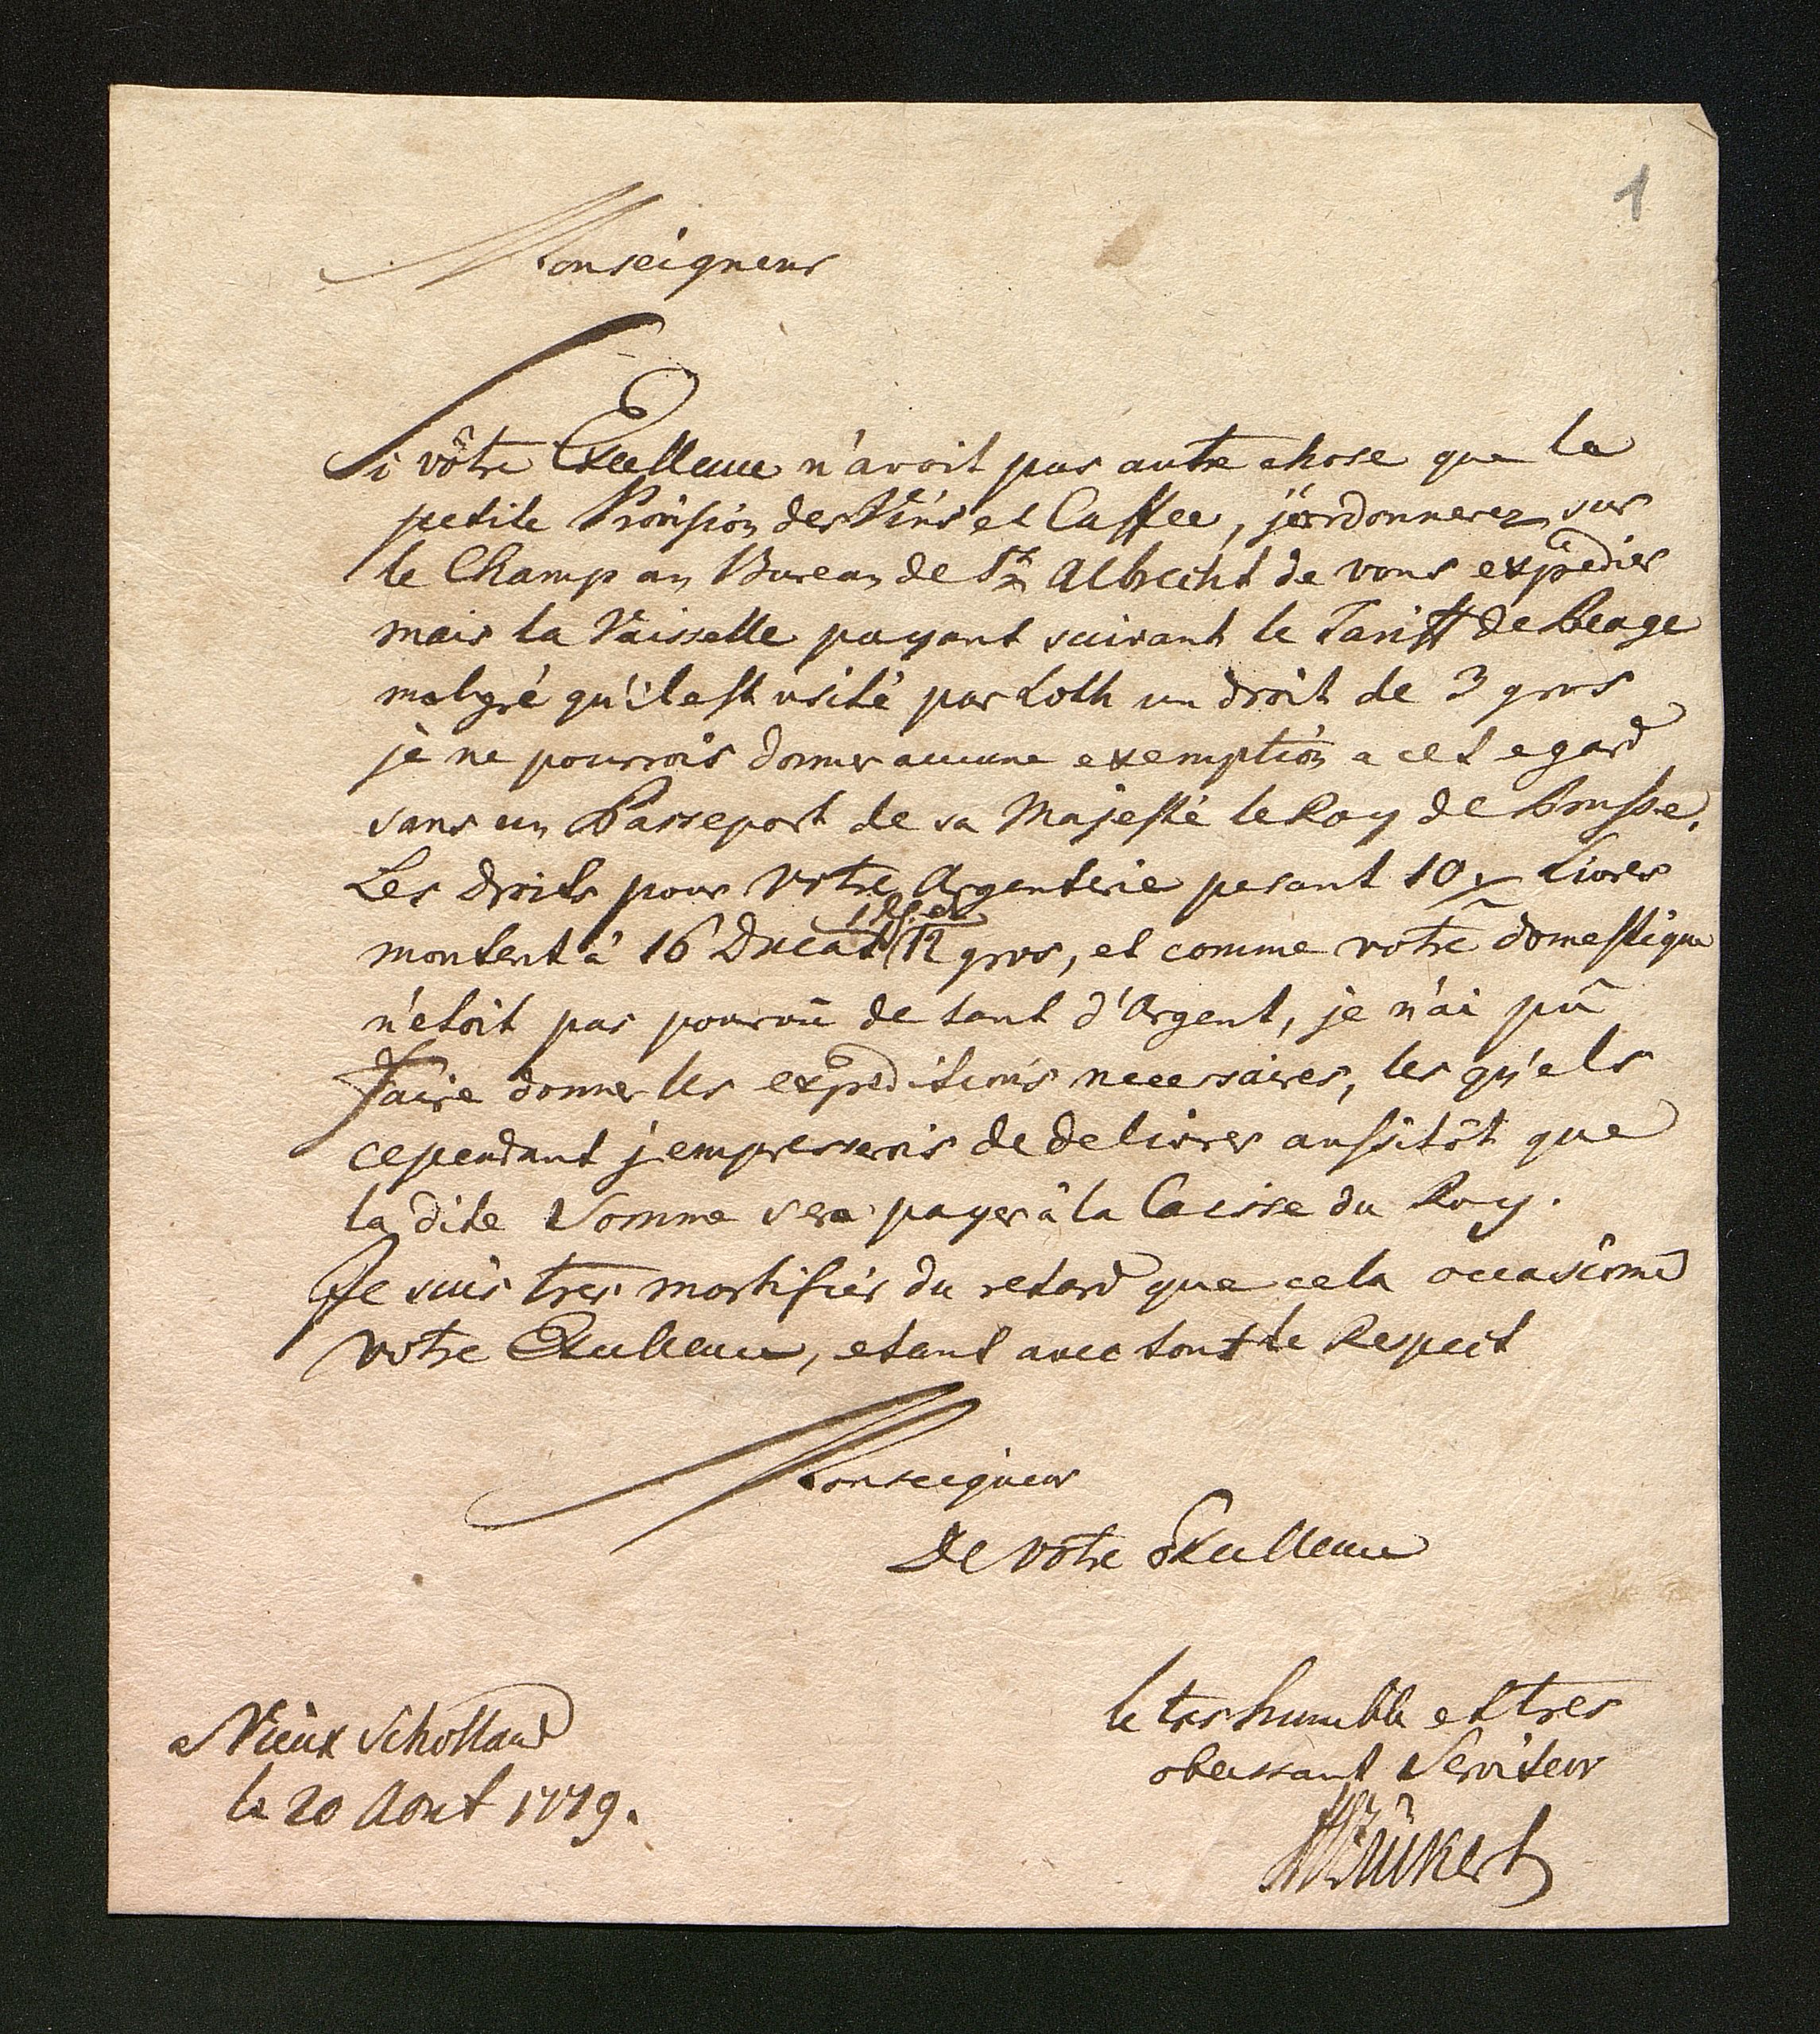 1
Monseigneur
Si vôtre Excellence n'avoit pas autre chose que la
petite Provision des Vins et Caffee, j'ordonnerez sur
le Champ au Bureau de St Albrecht de vous expedier
mais la Vaisselle payant suivant le Tariff de Peage
malgré qu'il est usité par Loth un droit de 3 gros
je ne pourrois donner aucune exemption a cet egard
sans un Passeport de sa Majesté le Roy de Prusse.
Les droits pour votre Argenterie pesant 10 Livres
montent à 16 Ducat 12 gros, et comme votre domestique
n'etoit pas pourvû de tant d'Argent, je n'ai pû
Faire donner les expeditions necessaires, les qu'els
cependant j'empresserois de delivrer aussitôt que
la dite Somme sera payer à la Caisse du Roy.
Je suis tres mortifier du retard que cela occasione
votre Excellence, etant avec tout le Respect
Monseigneur
De votre Excellence
le tres humble et tres
obeissant Serviteur
a Vieux Schottland
le 20 Aout 1779.